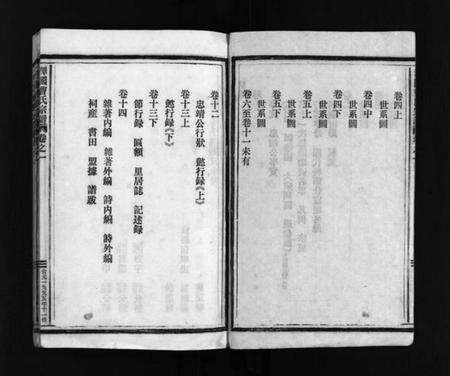 卷四上
世系圖
卷四中
世系圖
卷四下
世系圖
卷五上
世系圖
卷五下
世系圖
卷六至卷十一未有
卷十二
忠靖公行狀 懿行録《上》
卷十三上
懿行録《下》
卷十三下
節行録 匾額 里居誌 記述録
卷十四
雜著内編 雜著外編 詩内編 詩外編
祠産 書田 盟據 譜跋
氏宗譜 卷之一